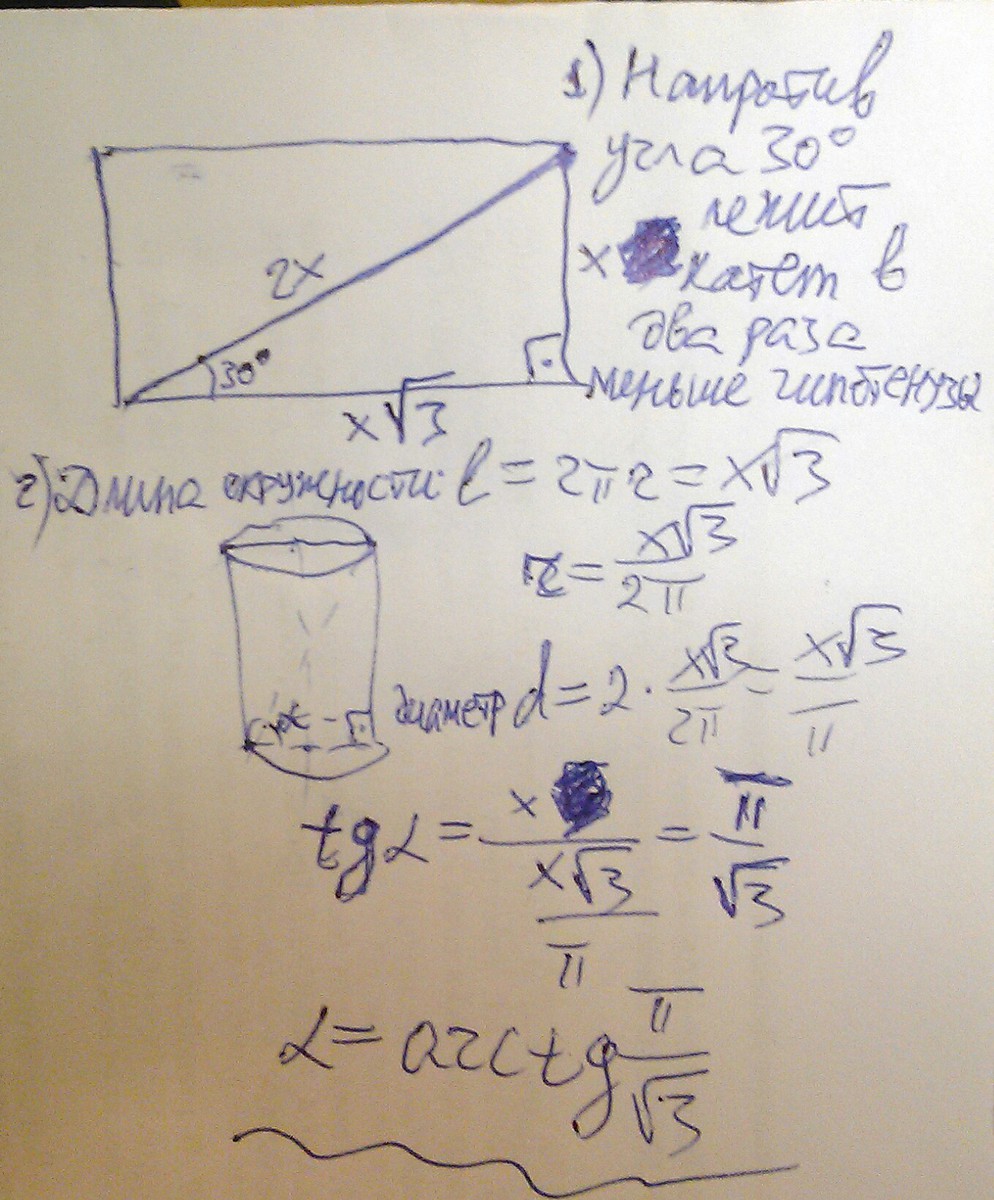 1) Напротив
угла 30°
лежит
x катет в
два раза
меньше гипотенузы
2x
30°
x√3
2) Длина окружности l = 2πr = x√3
r = x√3 / 2π
α
диаметр d = 2 · x√3 / 2π = x√3 / π
tg α = x / (x√3 / π) = π / √3
α = arctg π / √3